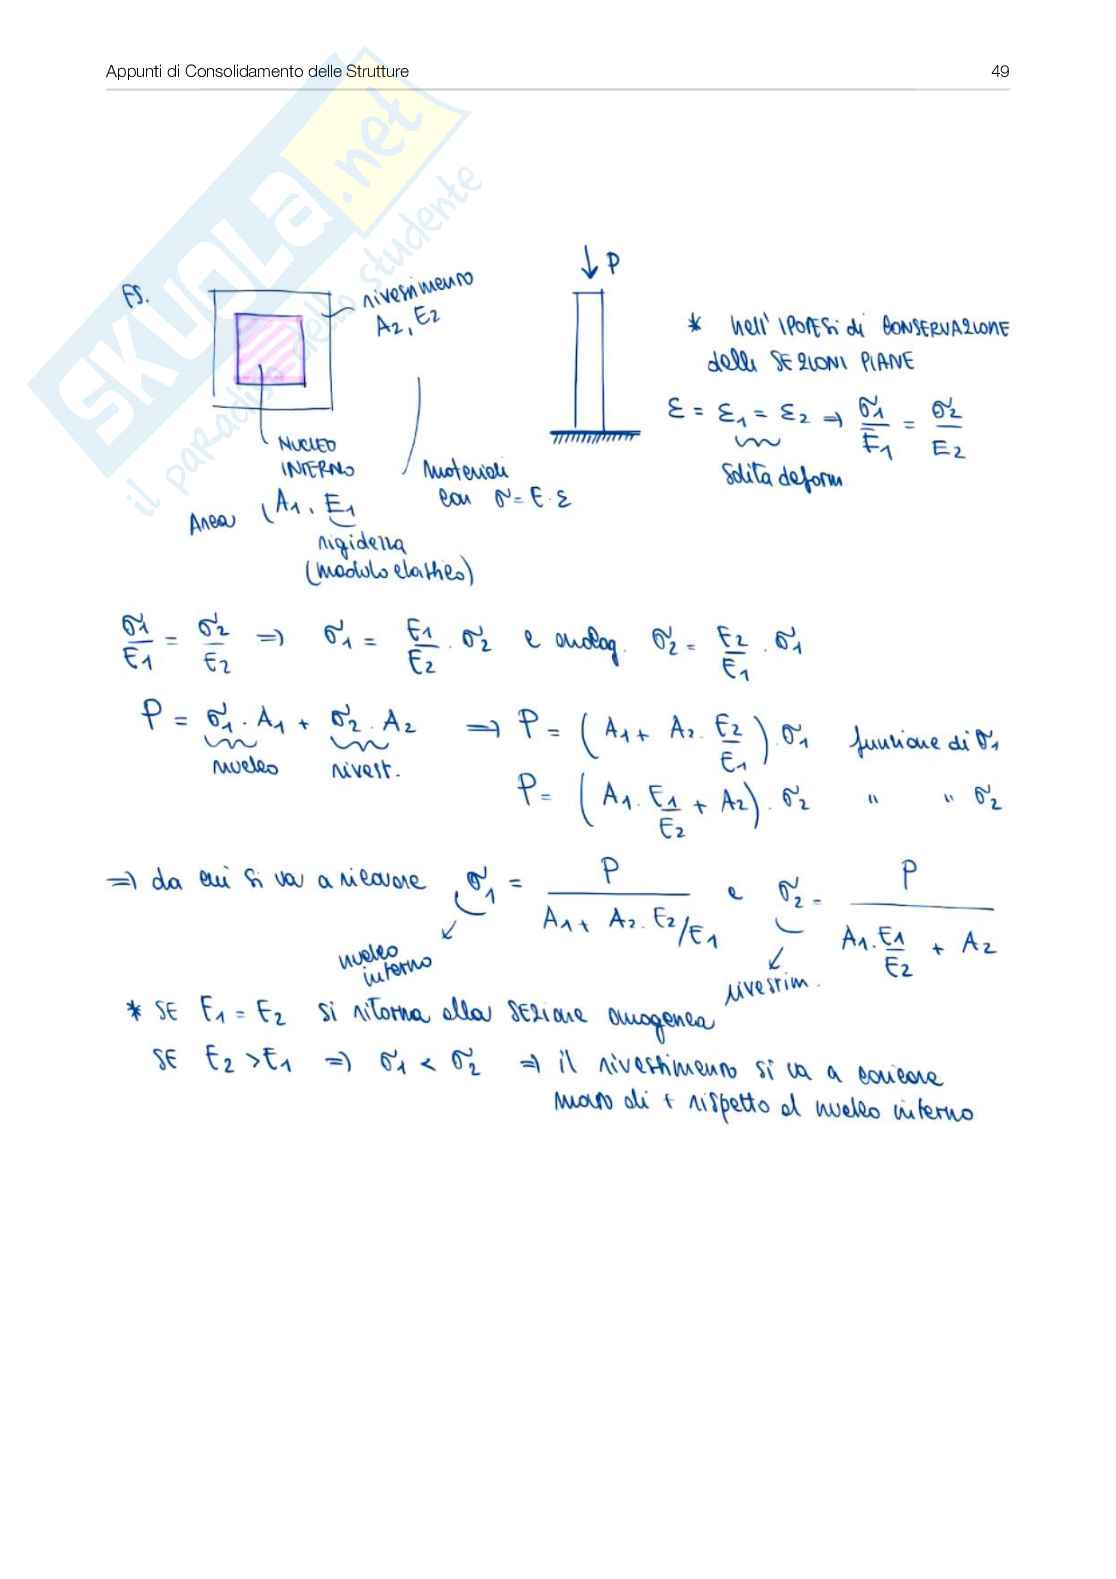 Appunti di Consolidamento delle Strutture 49
SKUOLA.net
il paradiso dello studente
ES.
rivestimento
A2, E2
NUCLEO
INTERNO
Area (A1, E1
rigidezza
(modulo elastico)
materiali
con σ = E · ε
↓ P
* nell'IPOTESI di CONSERVAZIONE
delle SEZIONI PIANE
ε = ε1 = ε2 ⇒ σ1/E1 = σ2/E2
solita deform
σ1/E1 = σ2/E2 ⇒ σ1 = E1/E2 · σ2 e analog. σ2 = E2/E1 · σ1
P = σ1 · A1 + σ2 · A2 ⇒ P = (A1 + A2 · E2/E1) · σ1 funzione di σ1
nucleo rivest.
P = (A1 · E1/E2 + A2) · σ2 " " σ2
⇒ da cui si va a ricavare σ1 = P / (A1 + A2 · E2/E1) e σ2 = P / (A1 · E1/E2 + A2)
nucleo
interno
rivestim.
* SE E1 = E2 si ritorna alla SEZIONE omogenea
SE E2 > E1 ⇒ σ1 < σ2 ⇒ il rivestimento si va a caricare
molto di + rispetto al nucleo interno